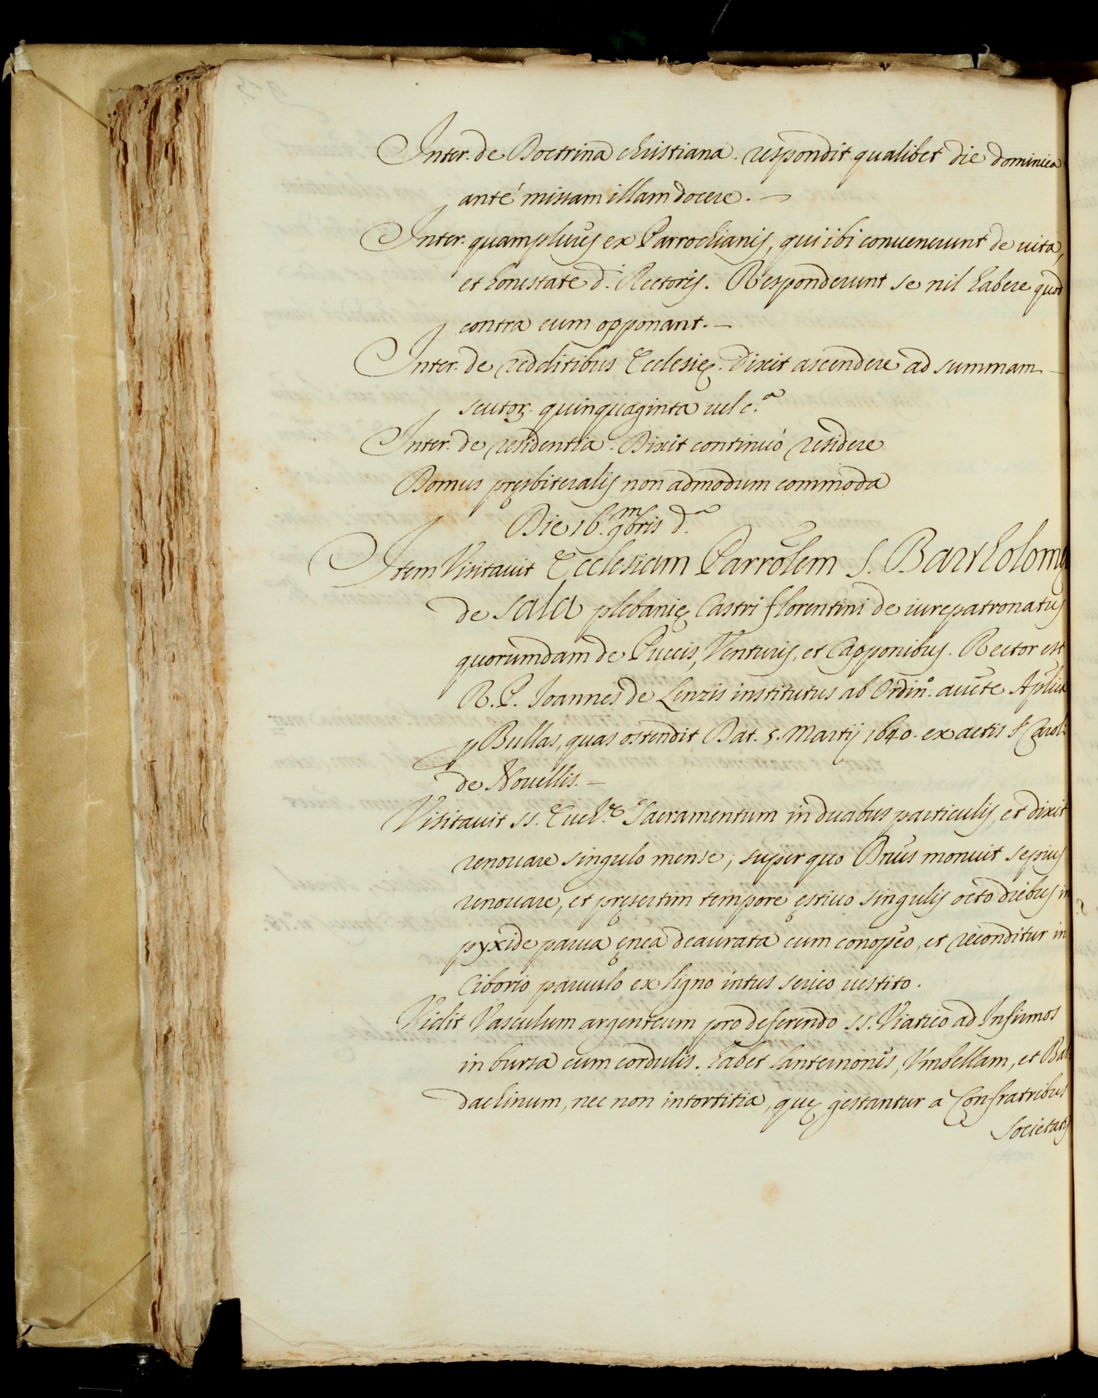 Inter. de Doctrina christiana. respondit qualibet die dominica
ante missam illam docere. —
Inter. quamplures ex Parrochianis, qui ibi convenerunt de vita,
et honestate d.i Rectoris. Responderunt se nil habere quod
contra eum opponant. —
Inter. de redditibus Ecclesię. Dixit ascendere ad summam
scutor. quinquaginta vel c.a
Inter. de residentia. Dixit continuò residere
Domus pręsbiteralis non admodum commoda
Die 16.m 9bris d.a
Item Visitavit Ecclesiam Parrolem S. Bartholomę
de Sala plebanię Castri florentini de iurepatronatus
quorumdam de Puccis, Venturis, et Capponibus. Rector est
R. P. Joannes de Lenzis institutus ab Ordin.o aucte Aplica
p Bullas, quas ostendit Dat. 5. Martij 1640. ex actis Caroli
de Novellis. —
Visitavit SS. Euch.e Sacramentum in duabus particulis, et dixit
renovare singulo mense, super quo Dnus monuit sepius
renovare, et pręsertim tempore ęstivo singulis octo diebus in
pyxide parva ęnea deaurata cum conopęo, et reconditur in
Ciborio parvulo ex ligno intus serico vestito.
Vidit Vasculum argenteum pro deferendo SS. Viatico ad Infirmos
in bursa cum cordulis. habet lanternones, Umbellam, et Bal
dachinum, nec non intortitia, quę gestantur a Confratribus
Societatis